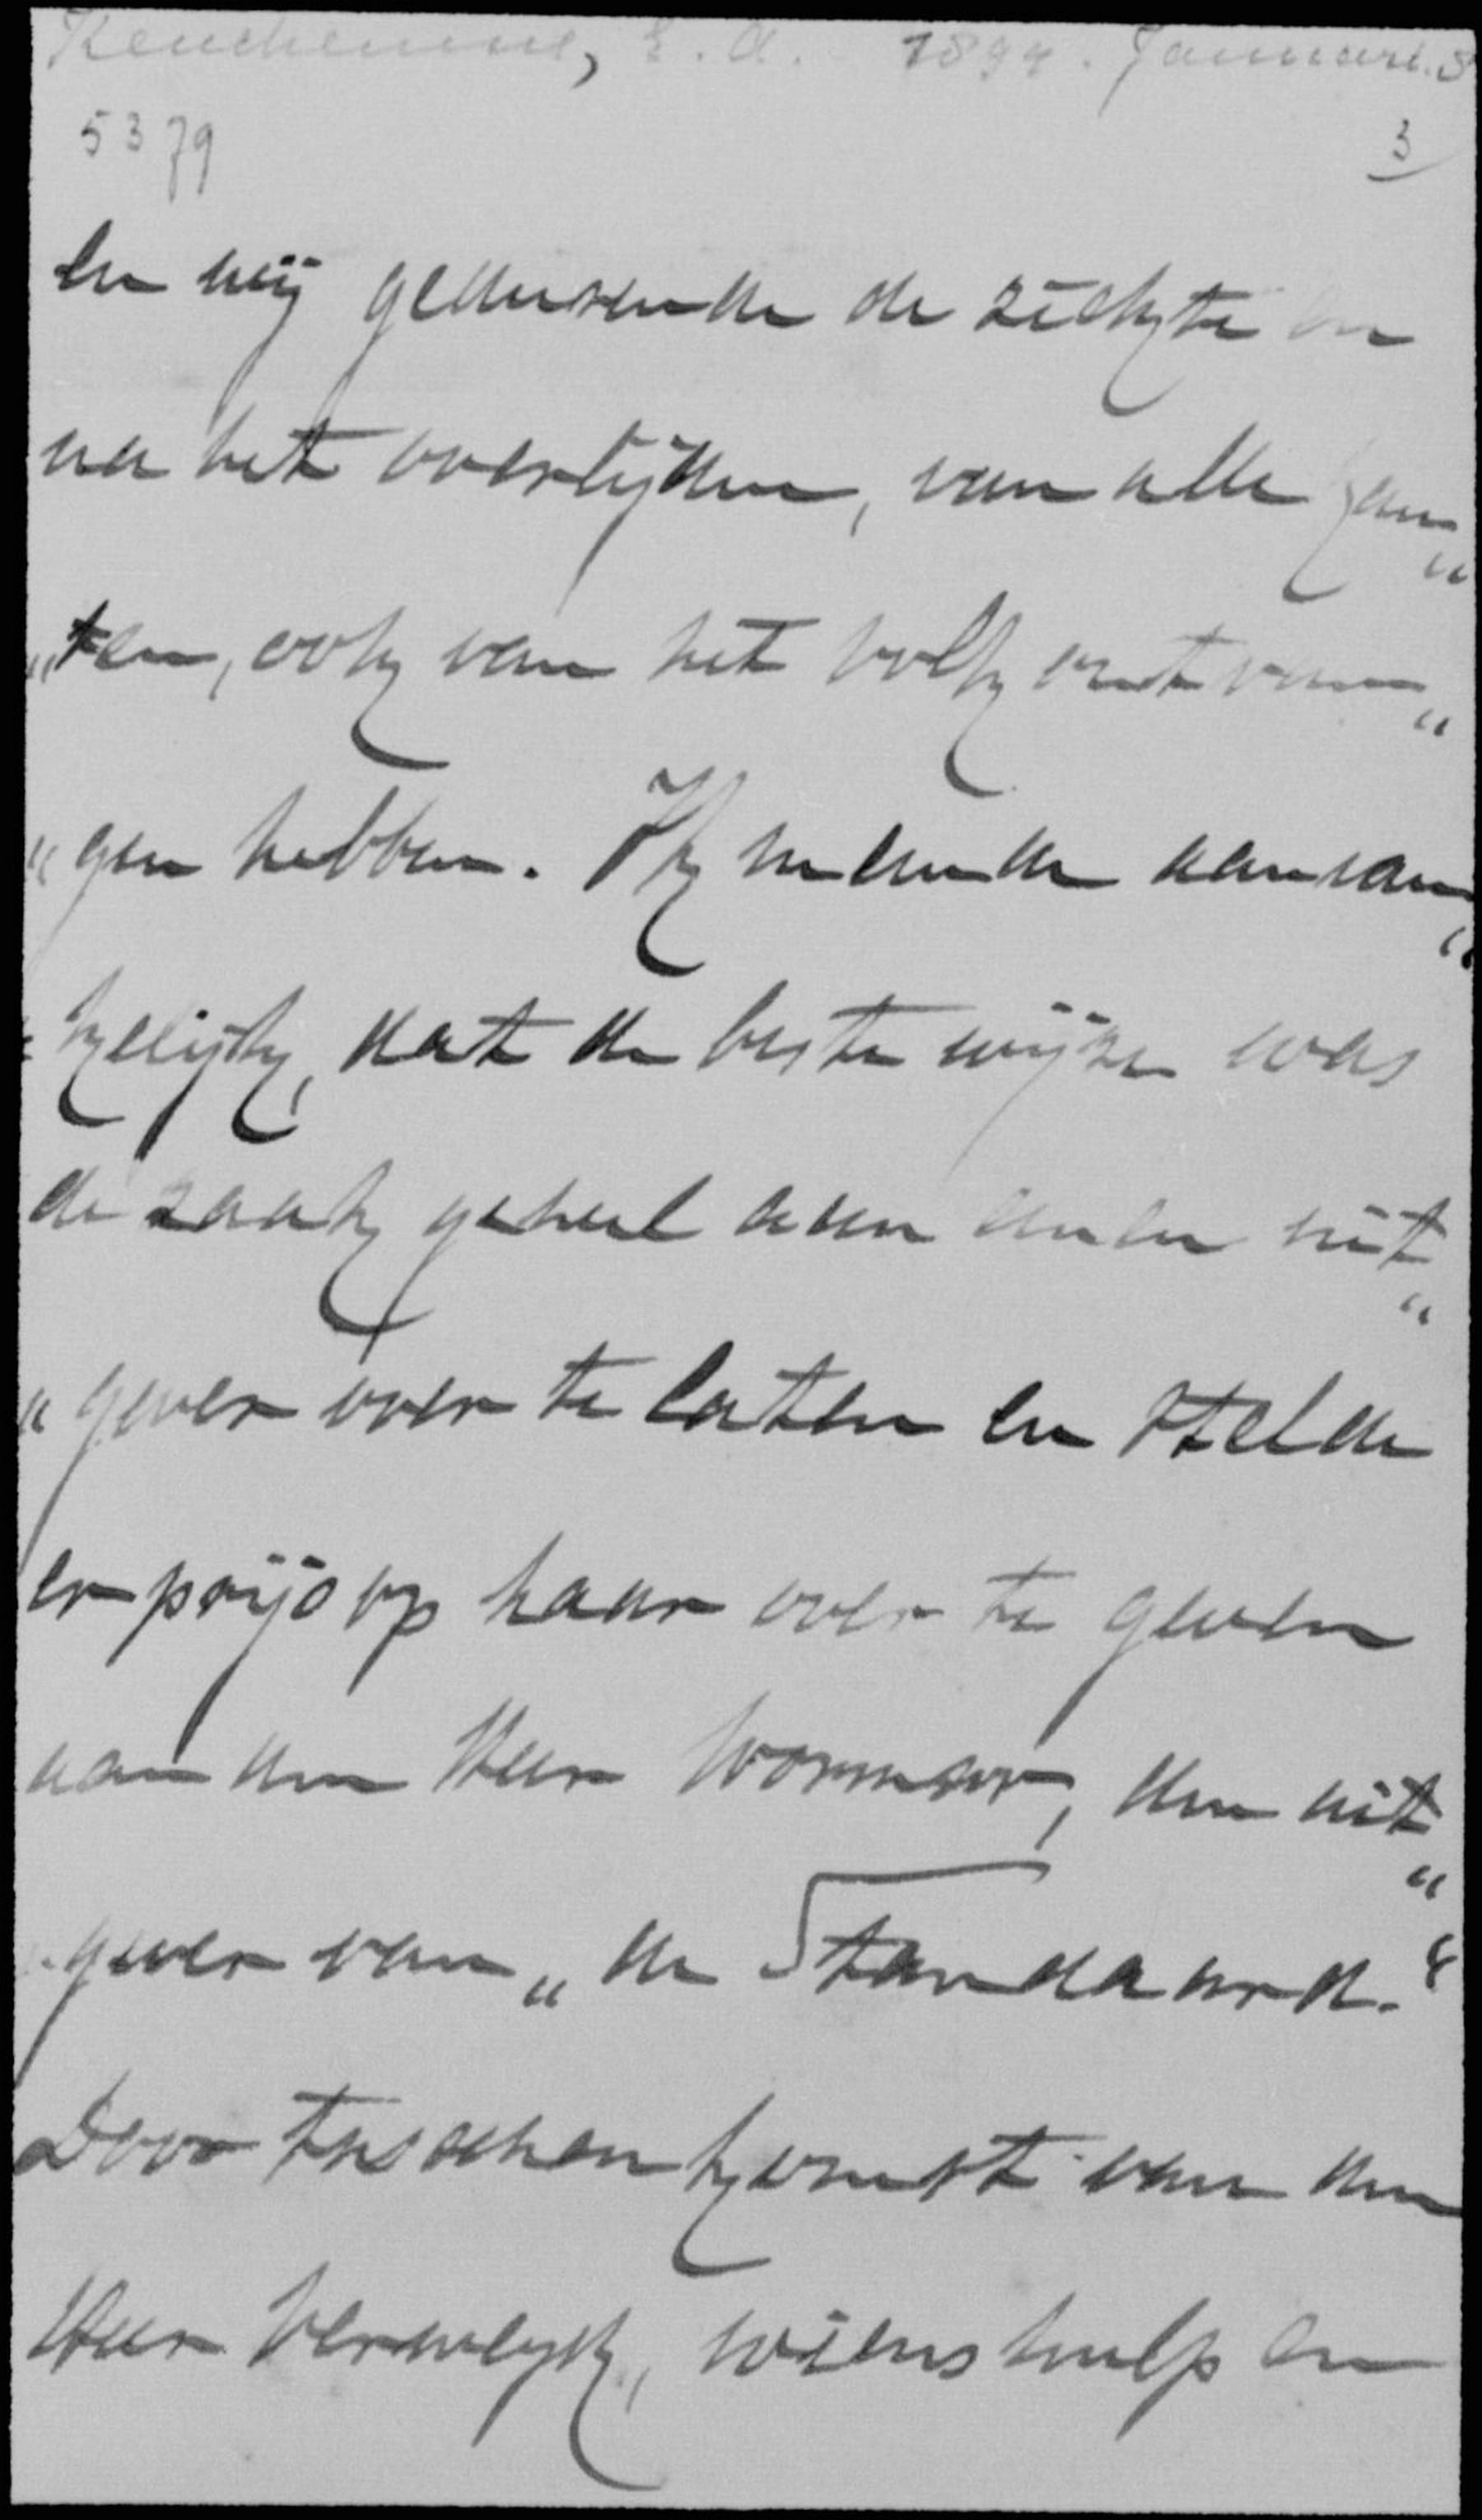 Keuchenius, E. A. 1894. Januari. 3
5379
3
en wij gedurende de ziekte en
na het overlijden, van alle kan„
„ten, ook van het volk ontvan„
„gen hebben. Ik meende aanvan„
„kelijk, dat de beste wijze was
de zaak geheel aan een uit„
„gever over te laten en stelde
er prijs op haar over te geven
aan den Heer Wormser, den uit„
„gever van „de Standaard."
Door tusschenkomst van den
Heer Verweyk, wiens hulp en